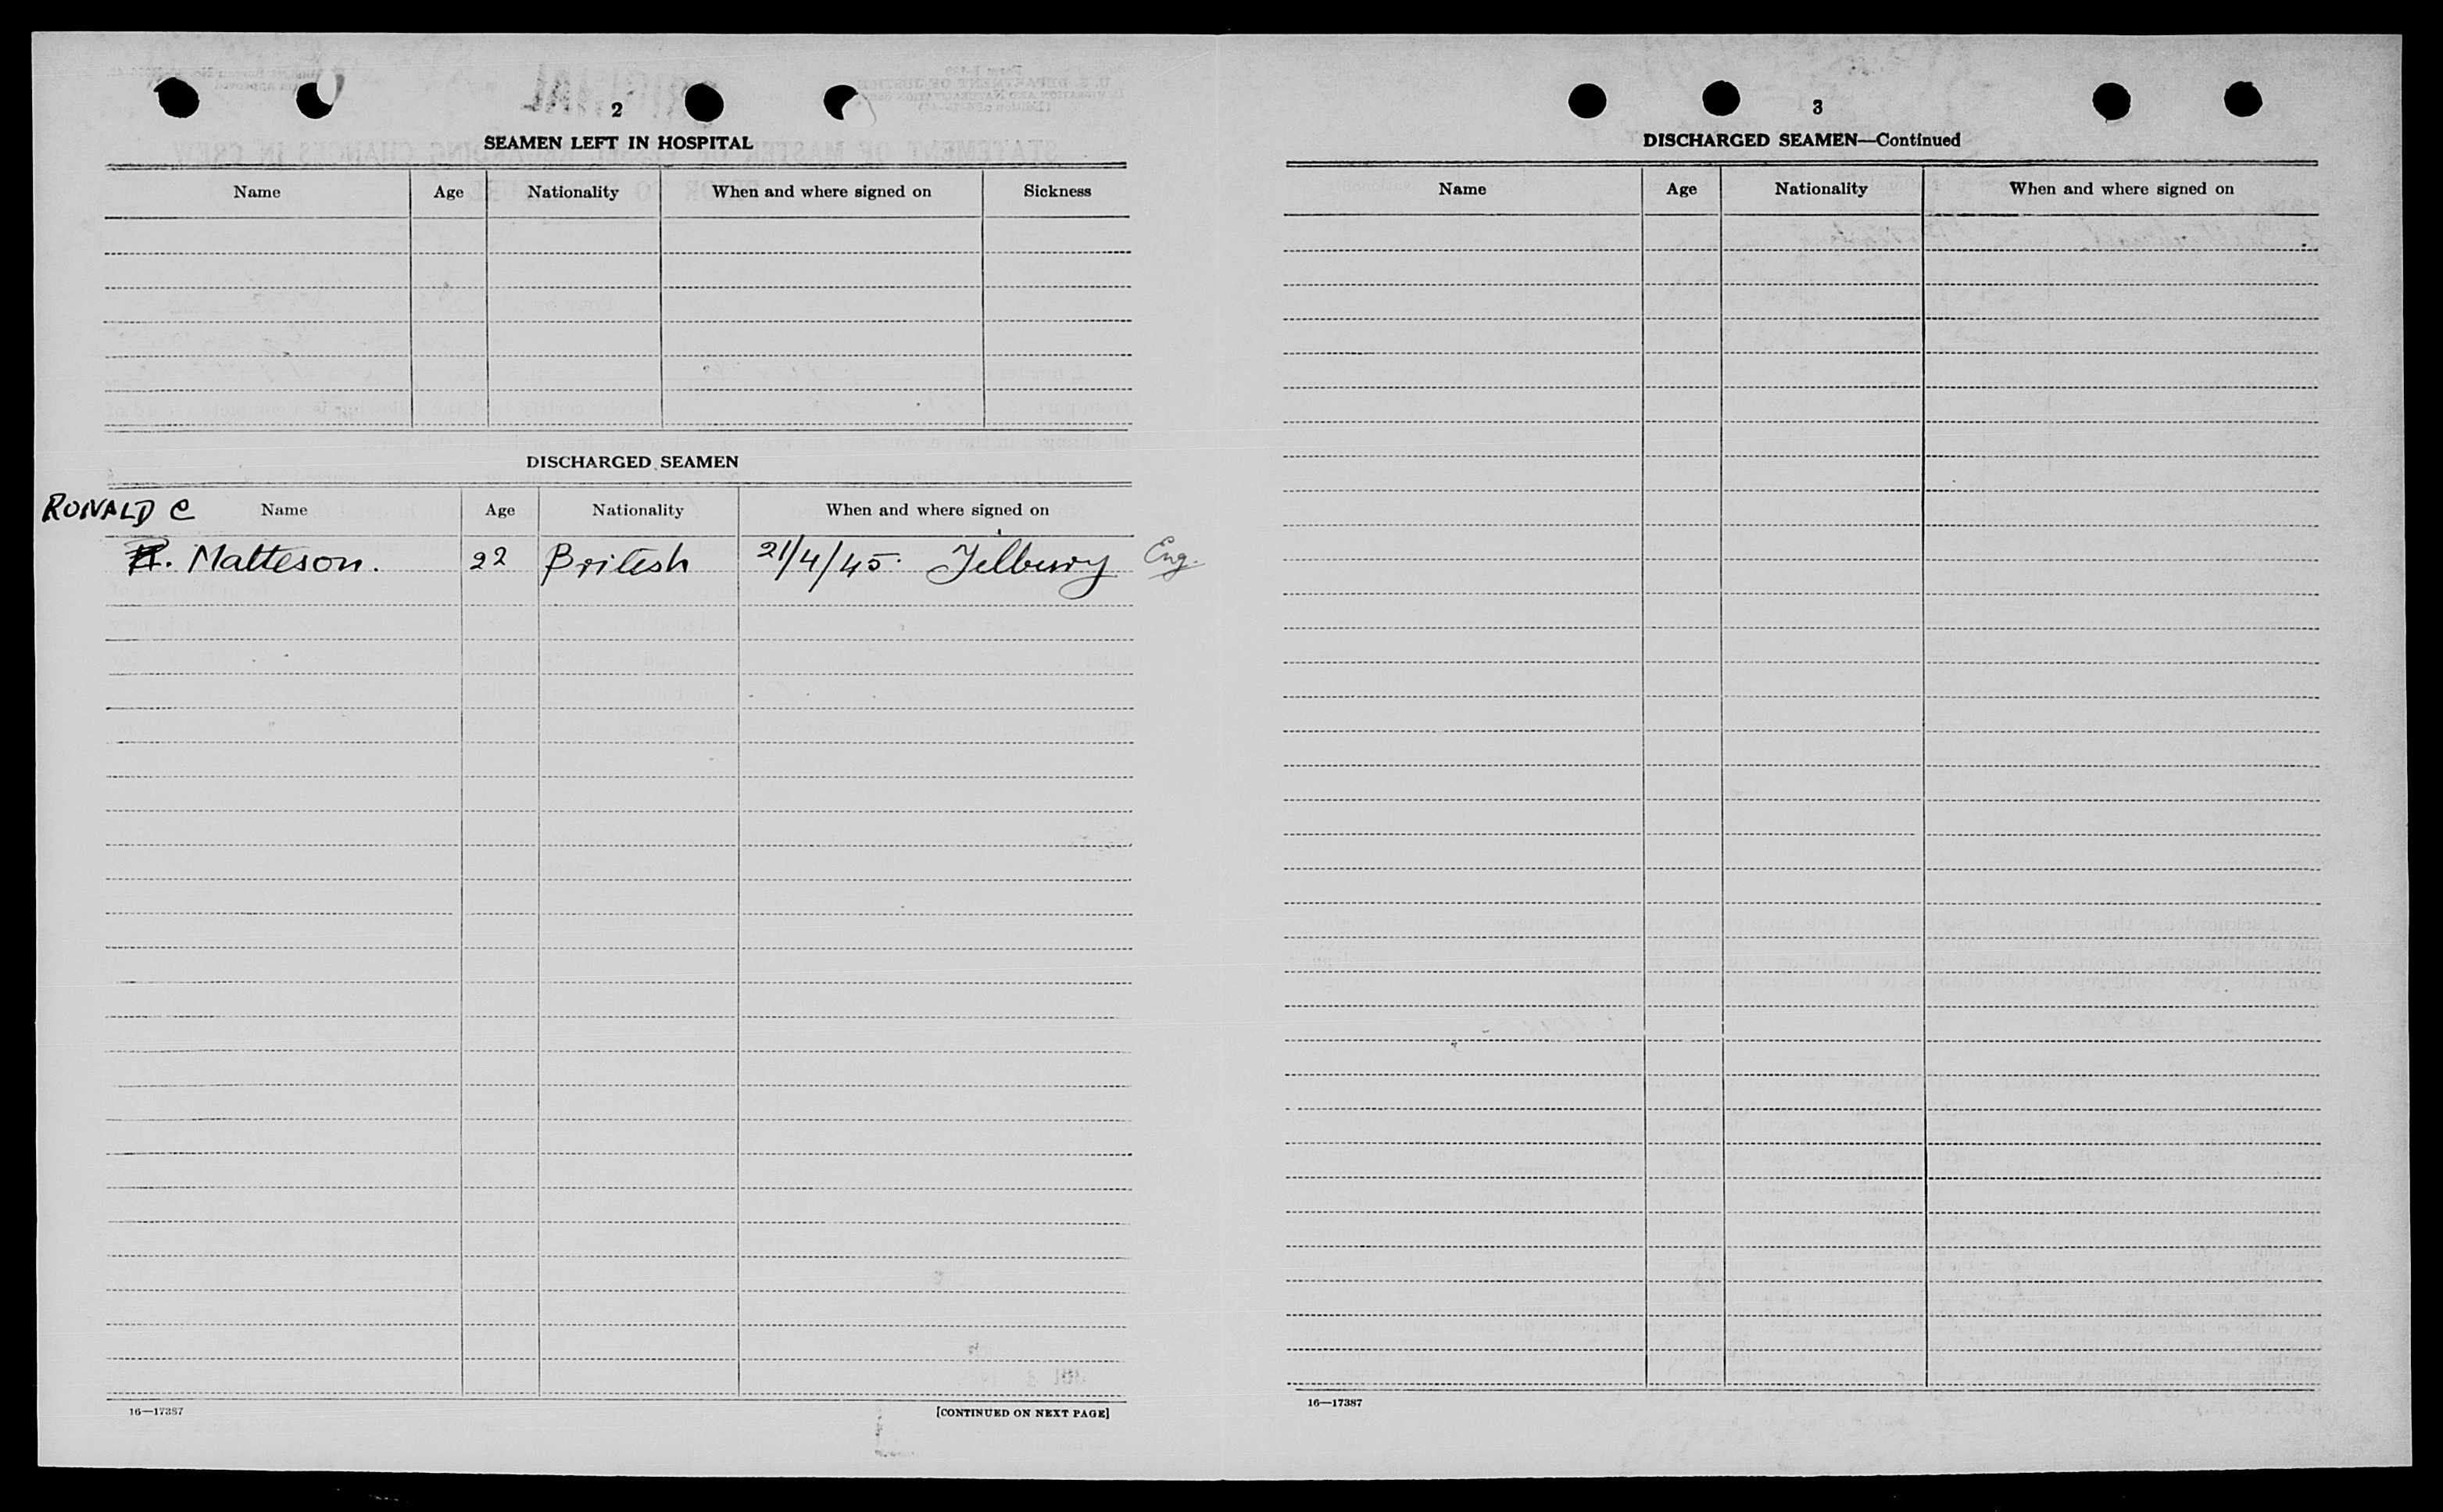 2
SEAMEN LEFT IN HOSPITAL
Name Age Nationality When and where signed on Sickness
DISCHARGED SEAMEN
RONALD C
Name Age Nationality When and where signed on
R. Matteson. 22 British 21/4/45. Tilbury Eng.
16—17387
[CONTINUED ON NEXT PAGE]
3
DISCHARGED SEAMEN—Continued
Name Age Nationality When and where signed on
16—17387